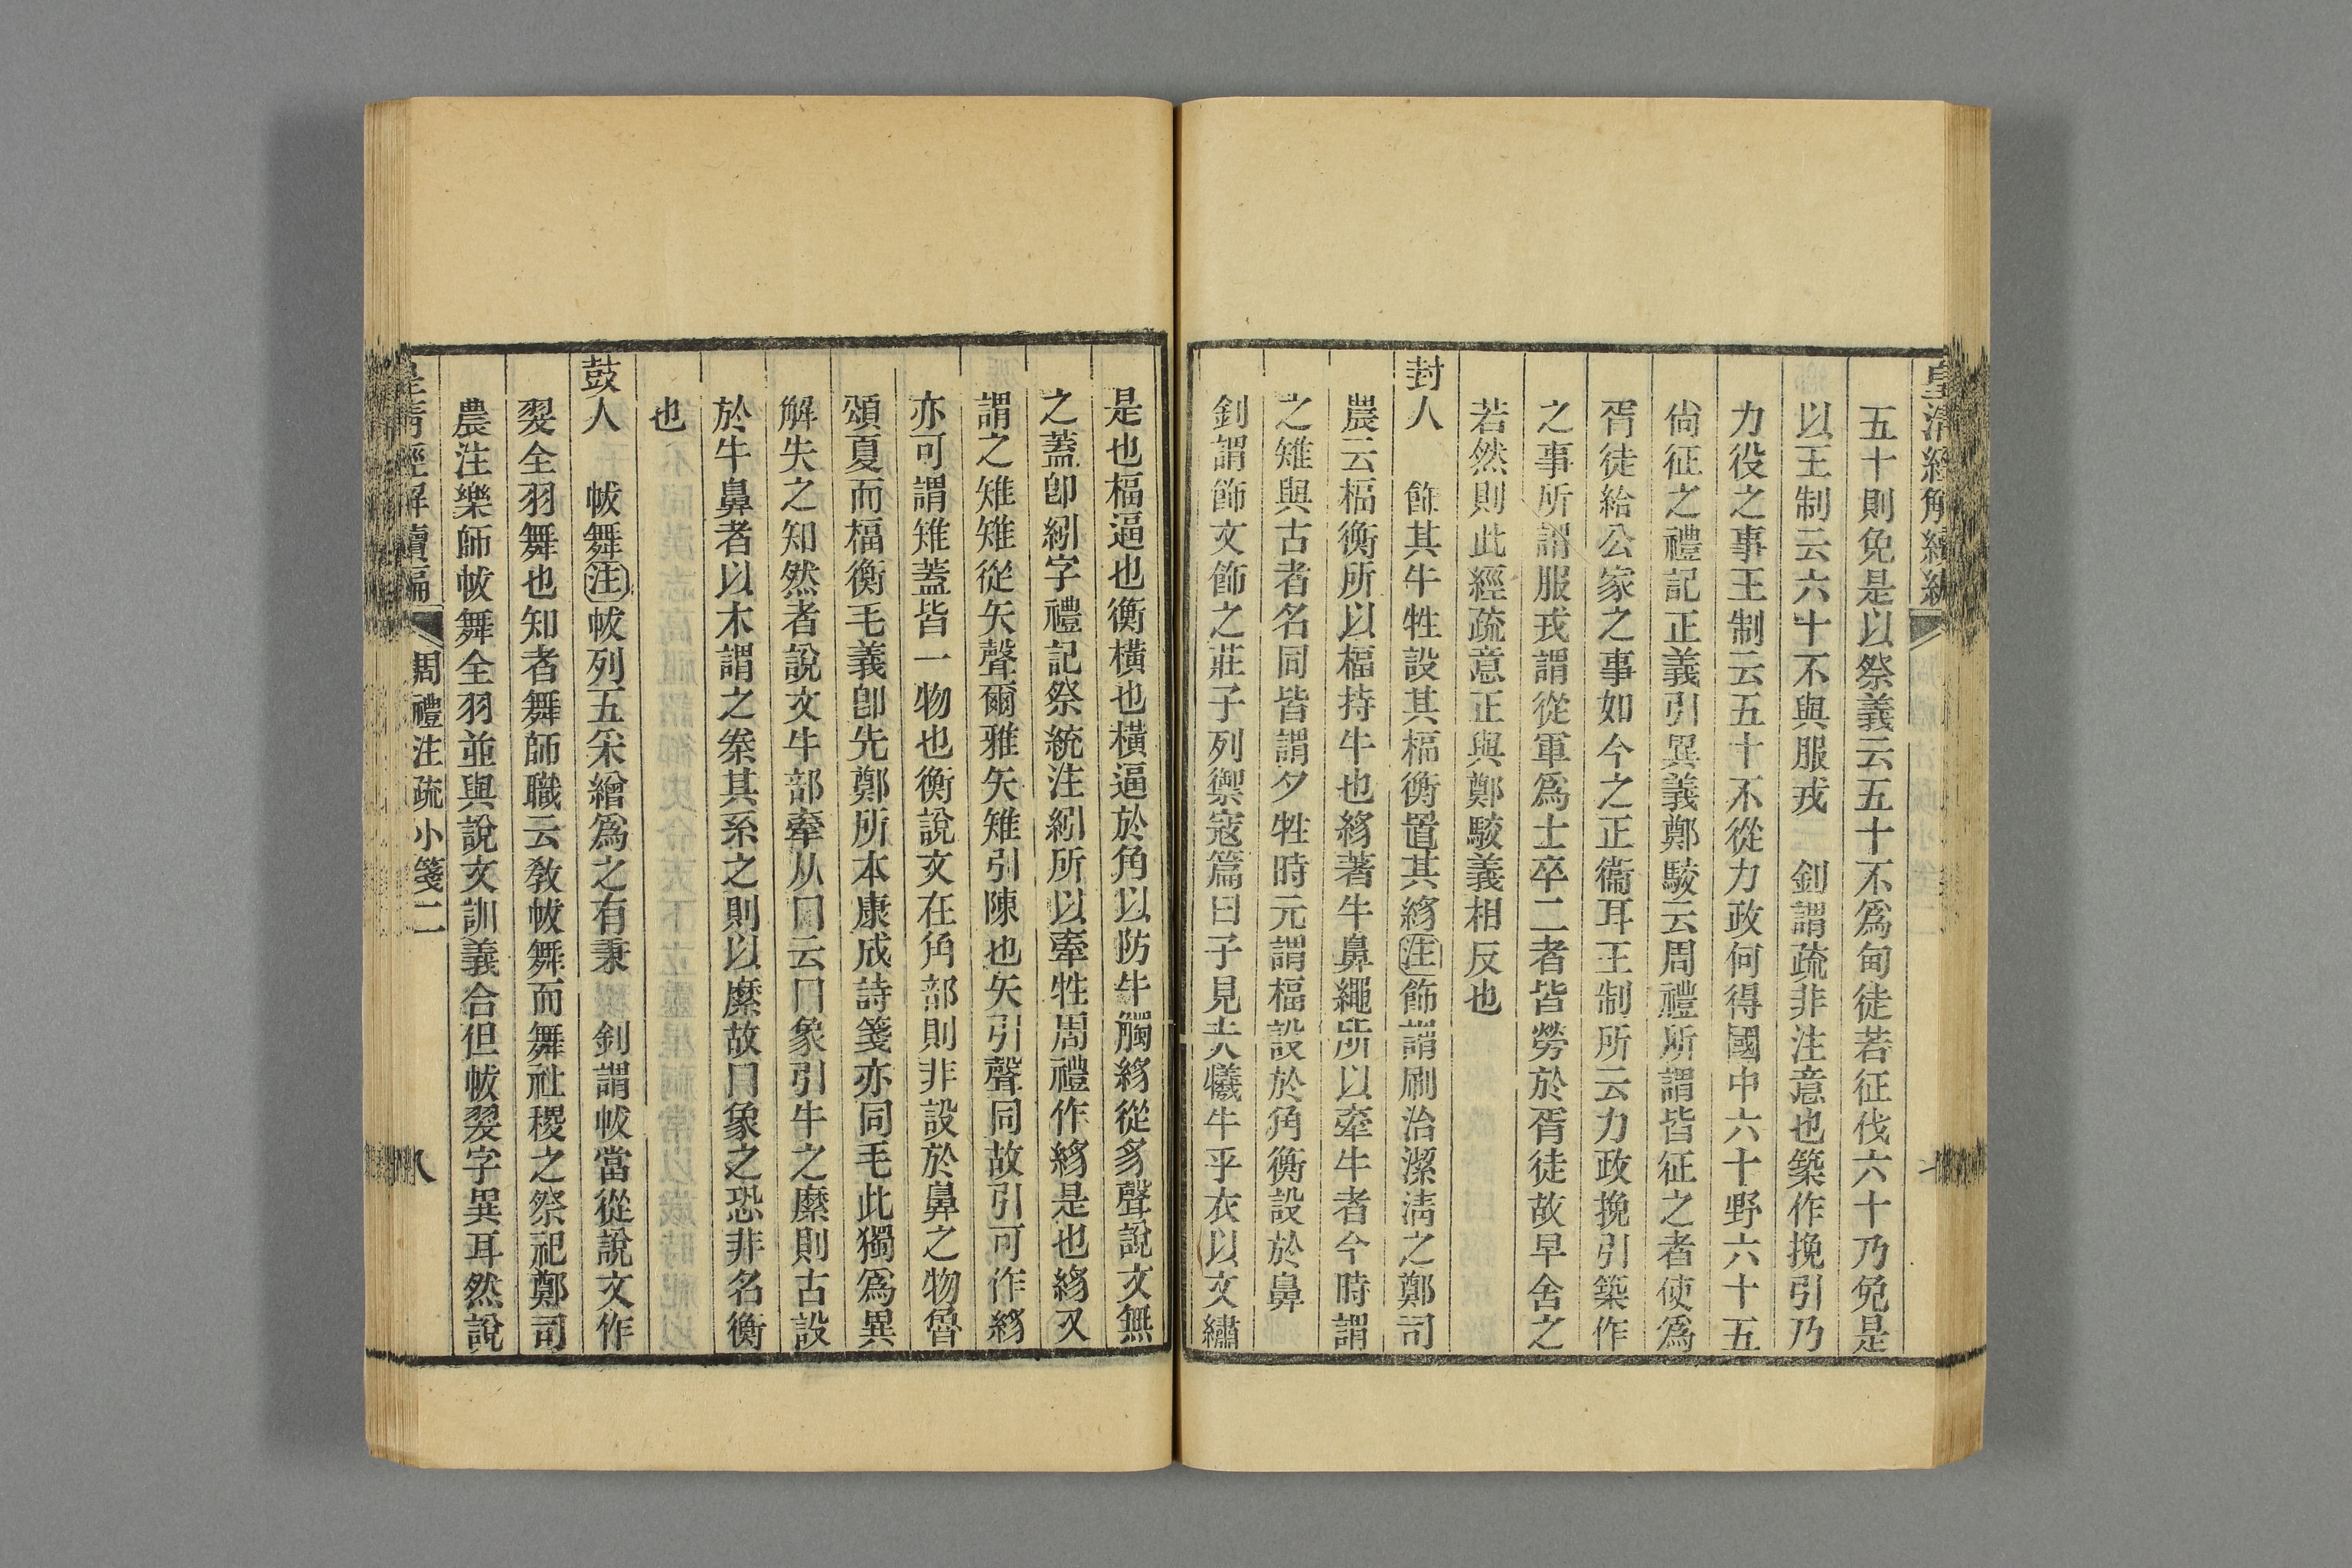 皇清經解續編
五十則免是以祭義云五十不爲甸徒若征伐六十乃免是
以王制云六十不與服戎 釗謂疏非注意也築作挽引乃
力役之事王制云五十不從力政何得國中六十野六十五
尙征之禮記正義引異義鄭駮云周禮所謂皆征之者使爲
胥徒給公家之事如今之正衞耳王制所云力政挽引築作
之事所謂服戎謂從軍爲士卒二者皆勞於胥徒故早舍之
若然則此經疏意正與鄭駮義相反也
封人 飾其牛牲設其楅衡置其絼注飾謂刷治潔淸之鄭司
農云楅衡所以楅持牛也絼著牛鼻繩所以牽牛者今時謂
之雉與古者名同皆謂夕牲時元謂楅設於角衡設於鼻
釗謂飾文飾之莊子列禦寇篇曰子見夫犧牛乎衣以文繡
是也楅逼也衡橫也橫逼於角以防牛觸絼從豸聲說文無
之蓋卽紖字禮記祭統注紖所以牽牲周禮作絼是也絼又
謂之雉雉從矢聲爾雅矢雉引陳也矢引聲同故引可作絼
亦可謂雉蓋皆一物也衡說文在角部則非設於鼻之物魯
頌夏而楅衡毛義卽先鄭所本康成詩箋亦同毛此獨爲異
解失之知然者說文牛部牽从冂云冂象引牛之縻則古設
於牛鼻者以木謂之桊其系之則以縻故冂象之恐非名衡
也
鼓人 帗舞注帗列五采繒爲之有秉 釗謂帗當從說文作
翇全羽舞也知者舞師職云敎帗舞而舞社稷之祭祀鄭司
農注樂師帗舞全羽並與說文訓義合但帗翇字異耳然說
皇淸經解續編 周禮注疏小箋二 八